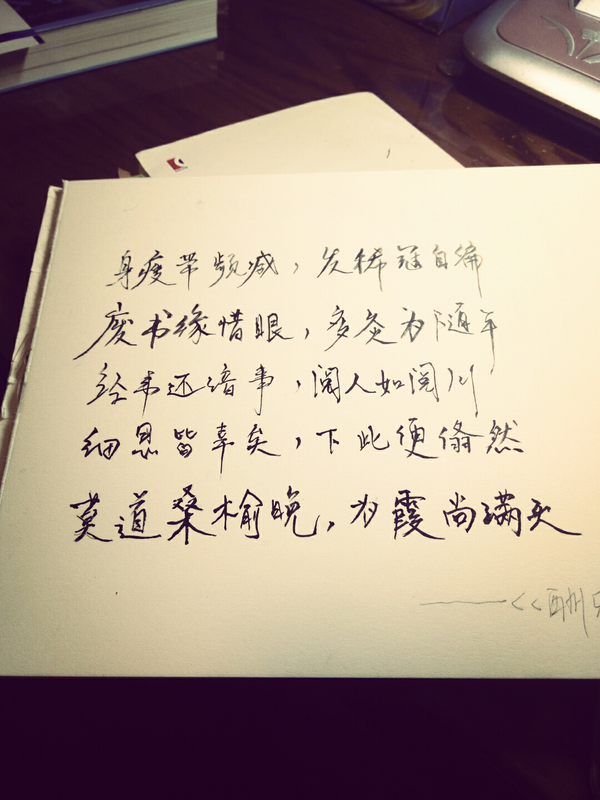 身瘦带频减，发稀冠自偏
废书缘惜眼，多灸为随年
经事还谙事，阅人如阅川
细思皆幸矣，下此便翛然
莫道桑榆晚，为霞尚满天
——<<酬